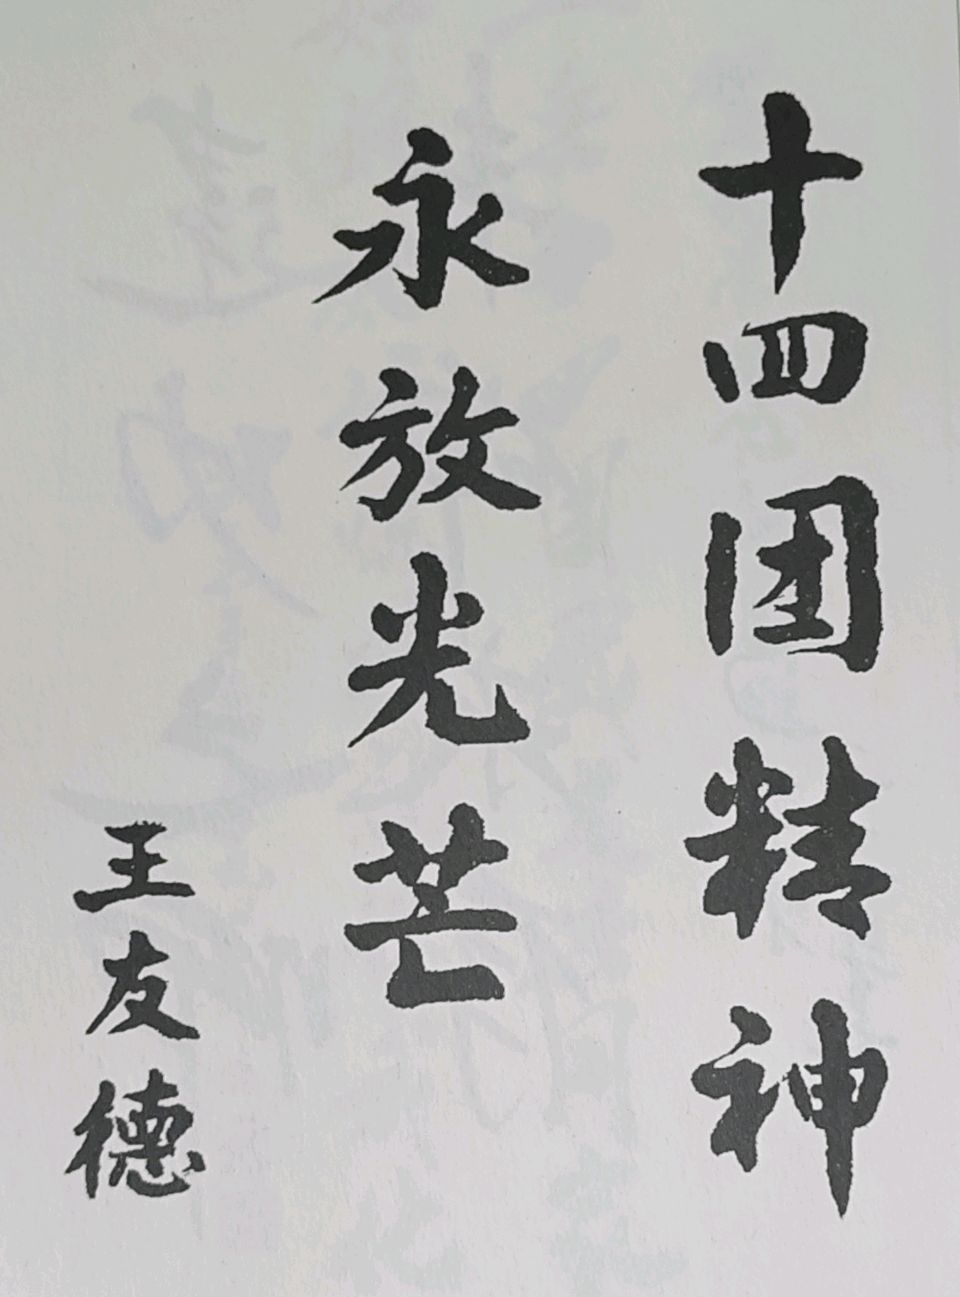 十四团精神
永放光芒
王友德